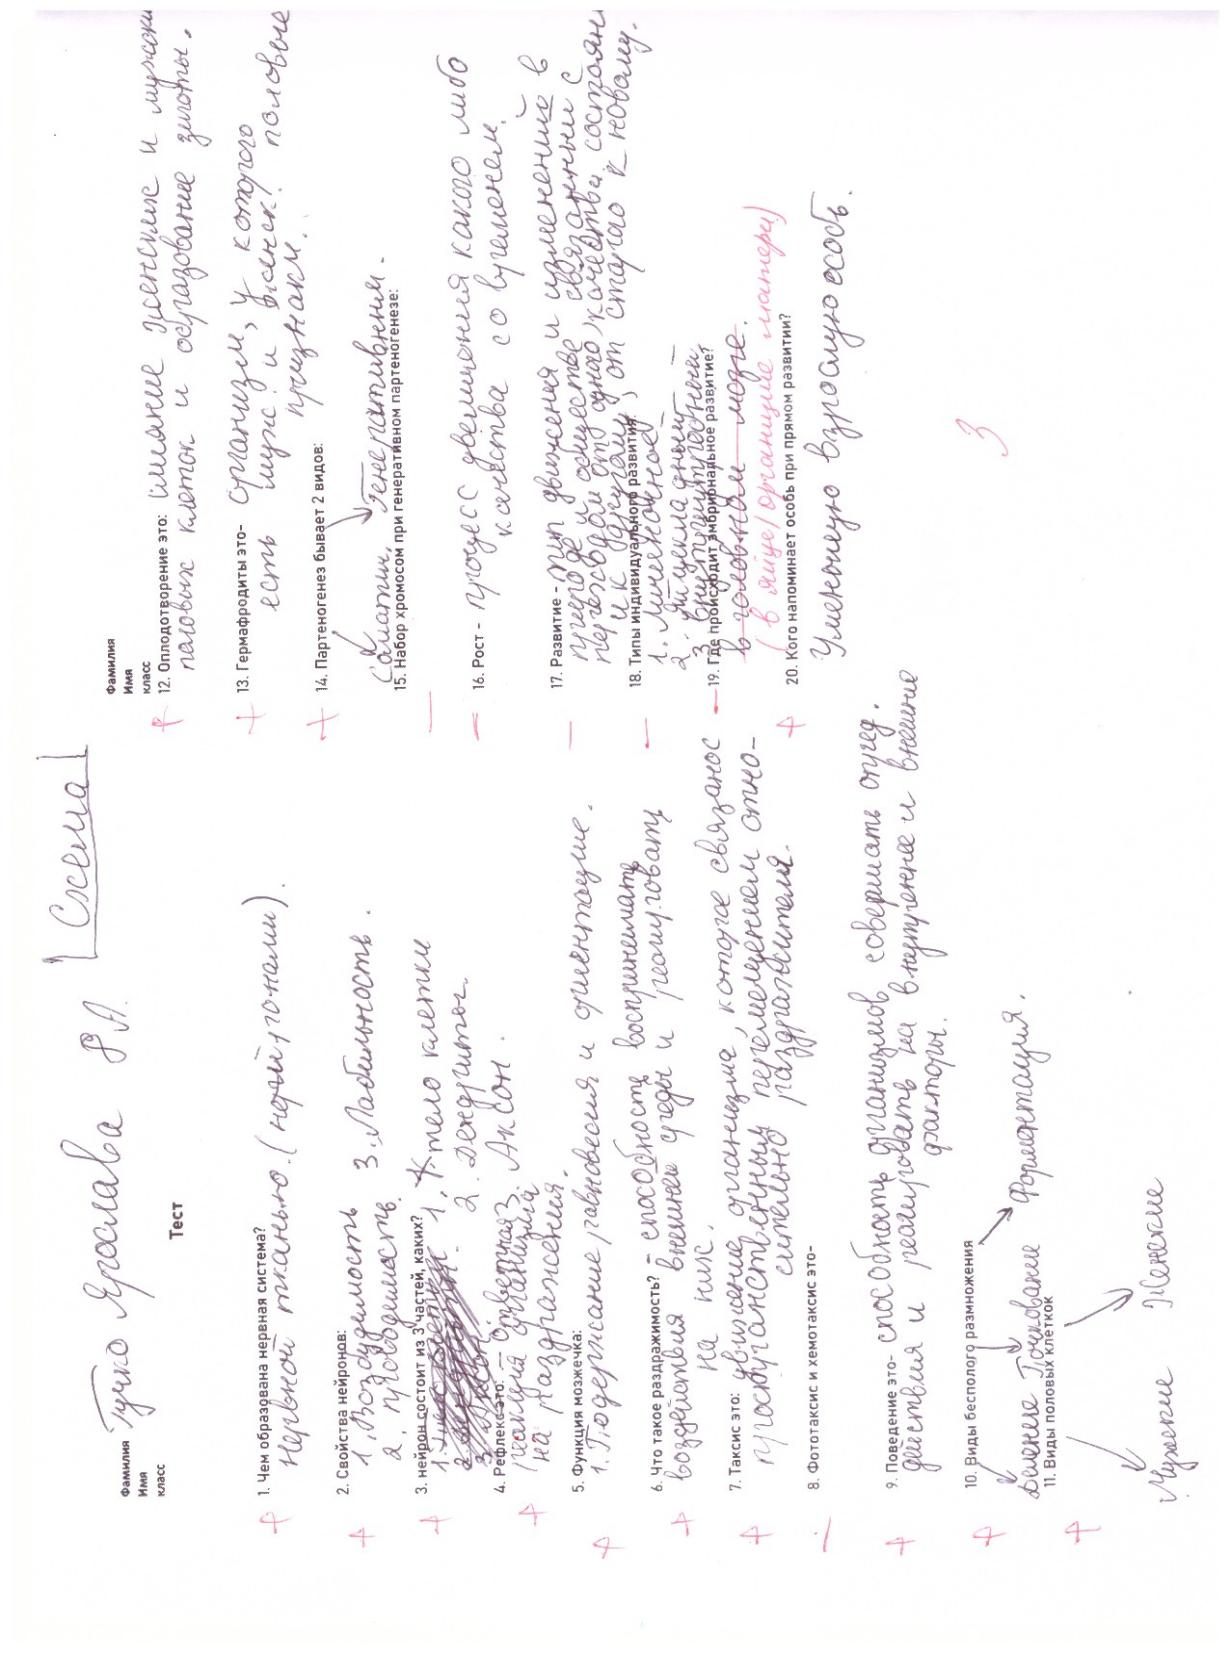 Гучко Ярослава 8А
Схема
Фамилия
Имя
класс
Тест
1. Чем образована нервная система?
Нервной тканью. (нейронами).
2. Свойства нейронов:
1. Возбудимость 3. Лабильность.
2. проводимость.
3. нейрон состоит из 3 частей, каких?
1. тело клетки
2. Дендриты
3. Аксон.
4. Рефлекс это: ответная
реакция организма
на раздражения.
5. Функция мозжечка:
1. Подержание равновесия и ориентация.
6. Что такое раздражимость? способность воспринемать
воздействия внешней среды и реагировать
на них.
7. Таксис это: движение организма, которое связанос
пространственным перемещением отно-
сительно раздражителя.
8. Фототаксис и хемотаксис это-
9. Поведение это- способность организмов совершать опред.
действия и реагировать на внутренние и внешние
факторы.
10. Виды бесполого размножения
Деление Почкование Форментация.
11. Виды половых клетко
Мужские Женские
Фамилия
Имя
класс
12. Оплодотворение это: слияние женских и мужски
половых клеток и образование зиготы.
13. Гермафродиты это- организм, у которого
есть муж. и женск. половые
признаки.
14. Партеногенез бывает 2 видов:
Соматич. Генеративный.
15. Набор хромосом при генеративном партеногенезе:
16. Рост - процесс увеличения какого либо
качества со временем.
17. Развитие - тип движения и изменений в
природе и обществе связанный с
переходом от одного качества, состоян
и к другому, от старого к новому.
18. Типы индивидуального развития
1. Личеночное
2. Яйцекладный
3. Внутриутробный
19. Где происходит эмбриональное развитие?
в головном мозге.
(в яйце/организме матери)
20. Кого напоминает особь при прямом развитии?
Уменьшеную взрослую особь.
3